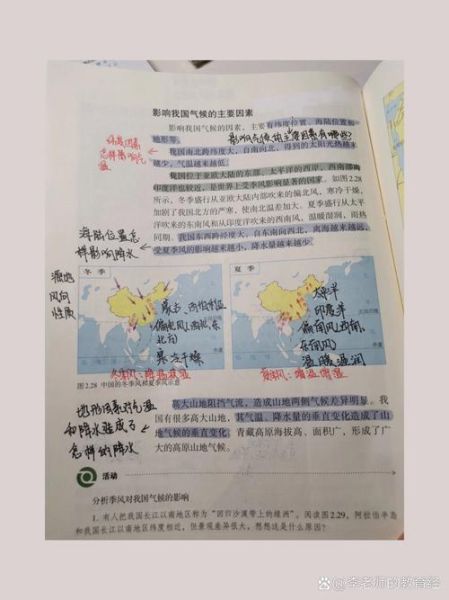 影响我国气候的主要因素
影响我国气候的因素，主要有纬度位置、海陆位置和
地形等。
影响气候的主要因素有哪些?
纬度因素
怎样影响气
温
我国南北跨纬度大，自南向北，得到的太阳光热越来
越少，气温越来越低。
我国位于亚欧大陆的东部、太平洋的西岸，西南部离
印度洋也较近，是世界上受季风影响显著的国家。如图2.28
所示，冬季盛行从亚欧大陆内部吹来的偏北风，寒冷干燥，
加剧了我国北方的严寒，使南北温差加大。夏季盛行从太平
洋吹来的东南风和从印度洋吹来的西南风，温暖湿润，雨热
同期。我国东西跨经度大，自东南向西北，离海越来越远，
受夏季风的影响越来越小，降水量越来越少。
海陆位置怎
样影响降水
源地
风向
性质
冬季
蒙古、西伯利亚
偏北风(西北、东
北向)
寒冷干燥
冬季风:降温减湿
夏季
太平洋
印度洋
偏南风(西南,
东南风)
温暖湿润
夏季风:增温增湿
图2.28 中国的冬季风和夏季风示意
地形因素对气温
和降水造成了
怎样的降水
高大山地阻挡气流，造成山地两侧气候差异明显。我
国有很多高大山地，其气温、降水量的垂直变化造成了山
地气候的垂直变化。青藏高原海拔高、面积广，形成了广
大的高原山地气候。
活动
分析季风对我国气候的影响
1. 有人把我国长江以南地区称为“回归沙漠带上的绿洲”。阅读图2.29，阿拉伯半岛
和我国长江以南地区纬度相近，但景观差异很大，想想这是什么原因?
@李老师的教育经